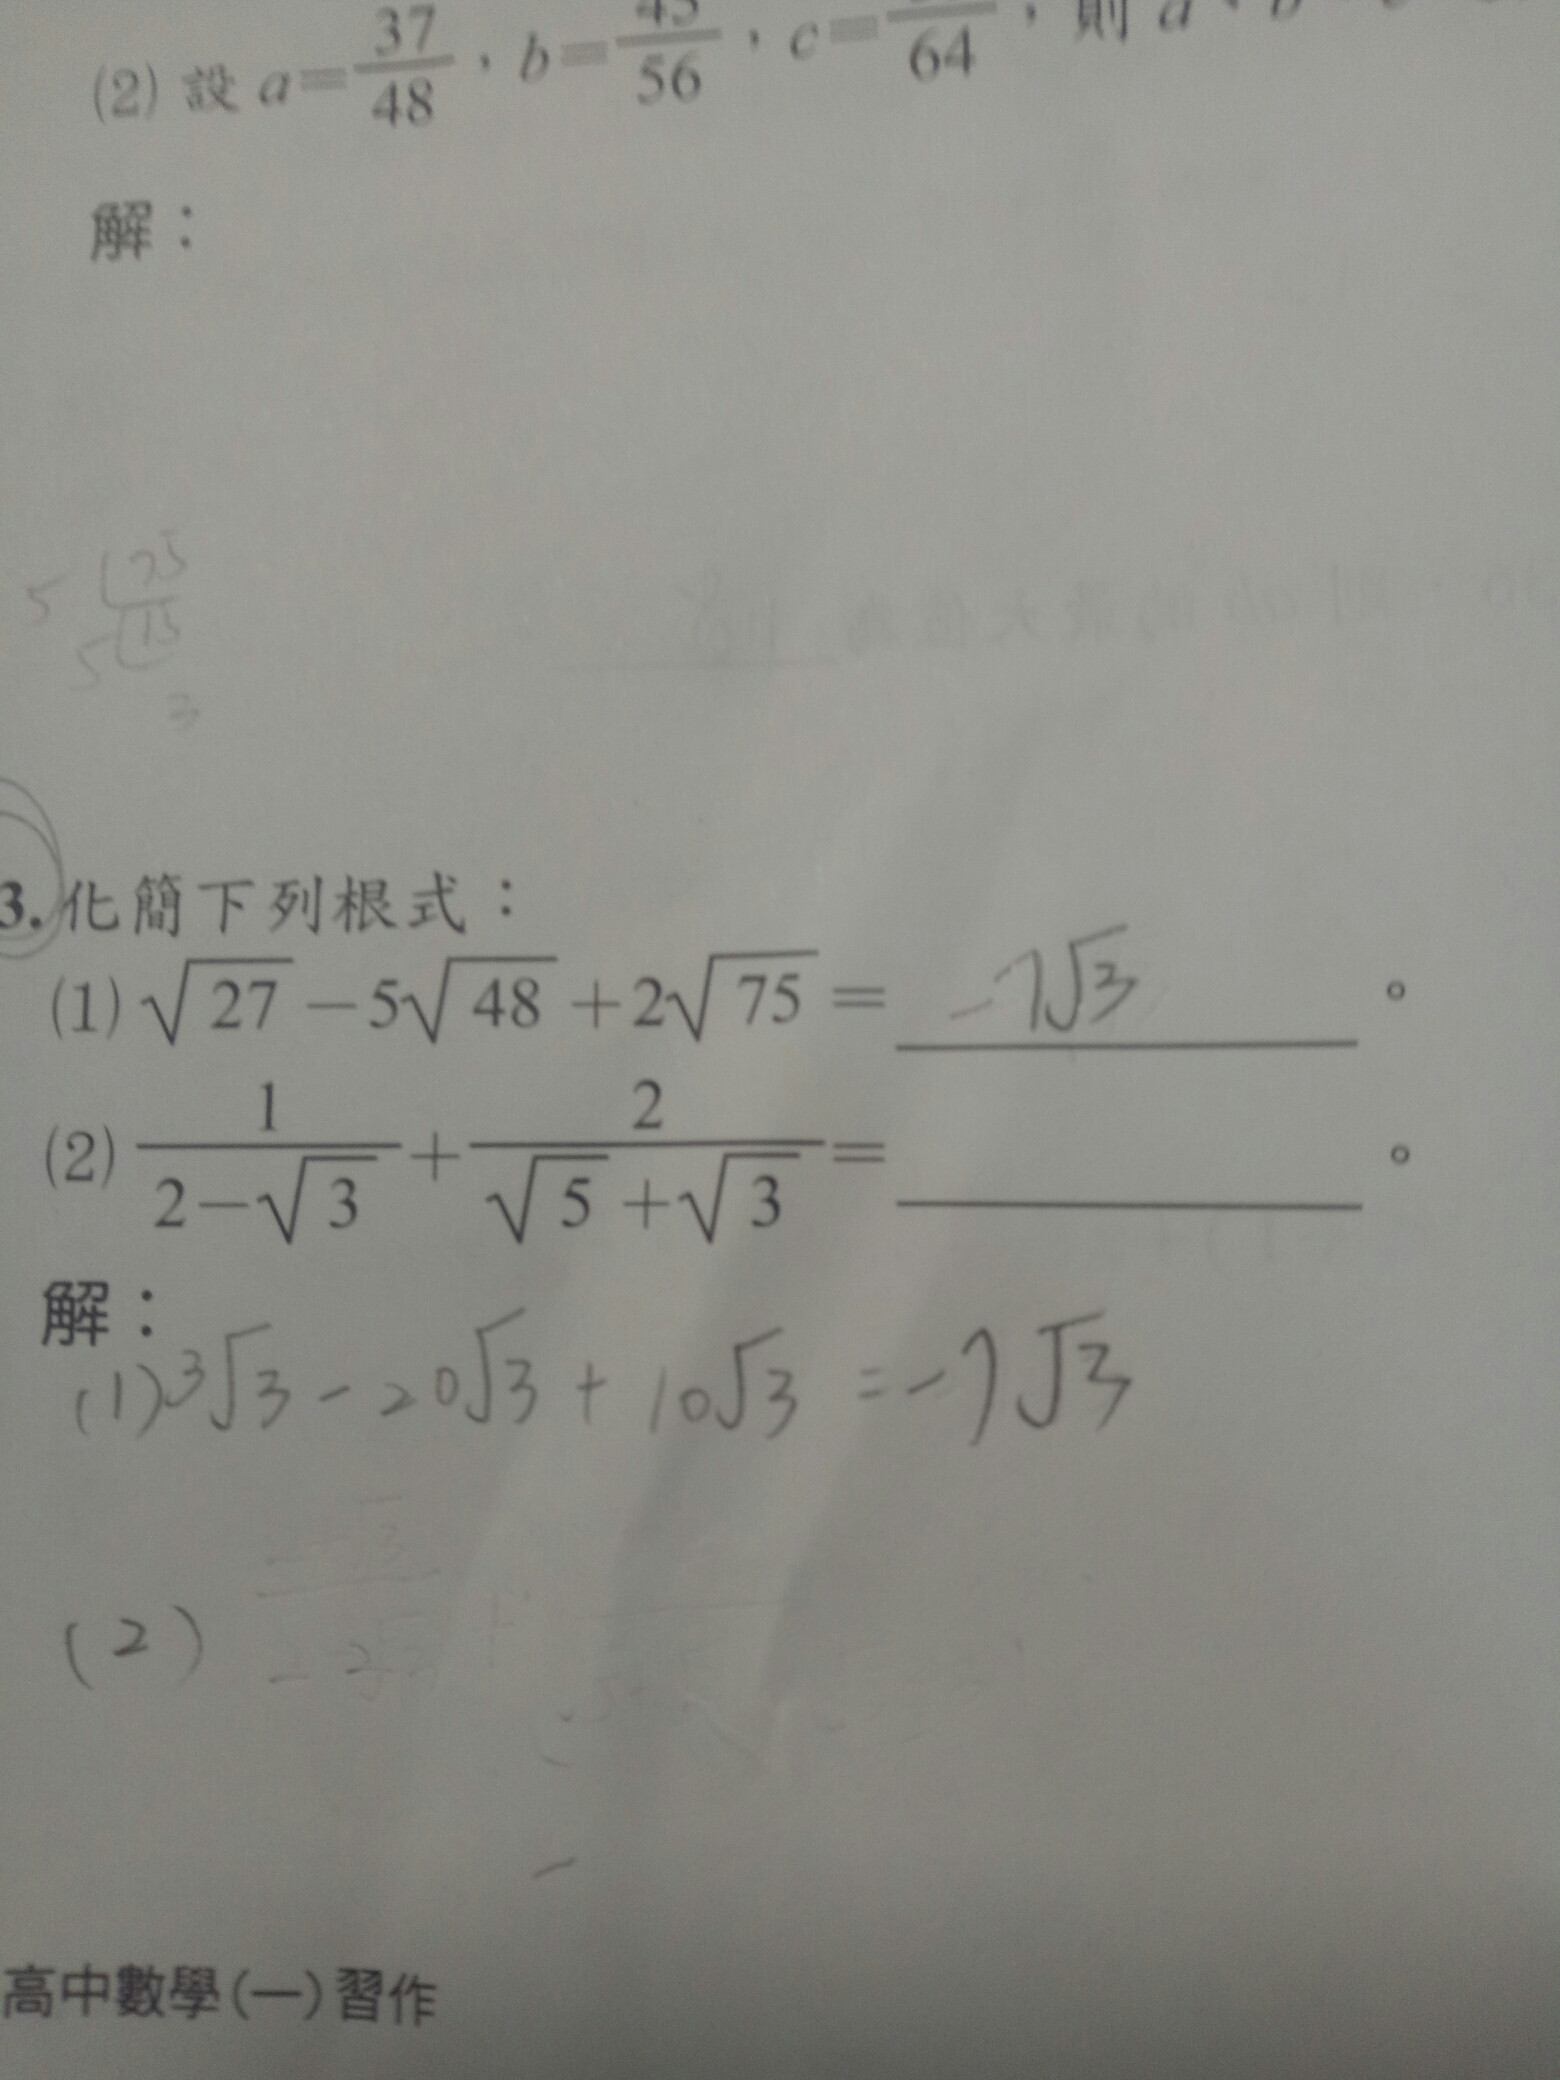 (2) 設 a=37/48，b=45/56，c=/64，則 a、b
解：
5 75
5 15
3
3. 化簡下列根式：
(1) √27 −5√48 +2√75 = −7√3 。
(2) 1/(2−√3) + 2/(√5+√3) = 。
解：
(1) 3√3 − 20√3 + 10√3 = −7√3
(2)
高中數學(一)習作